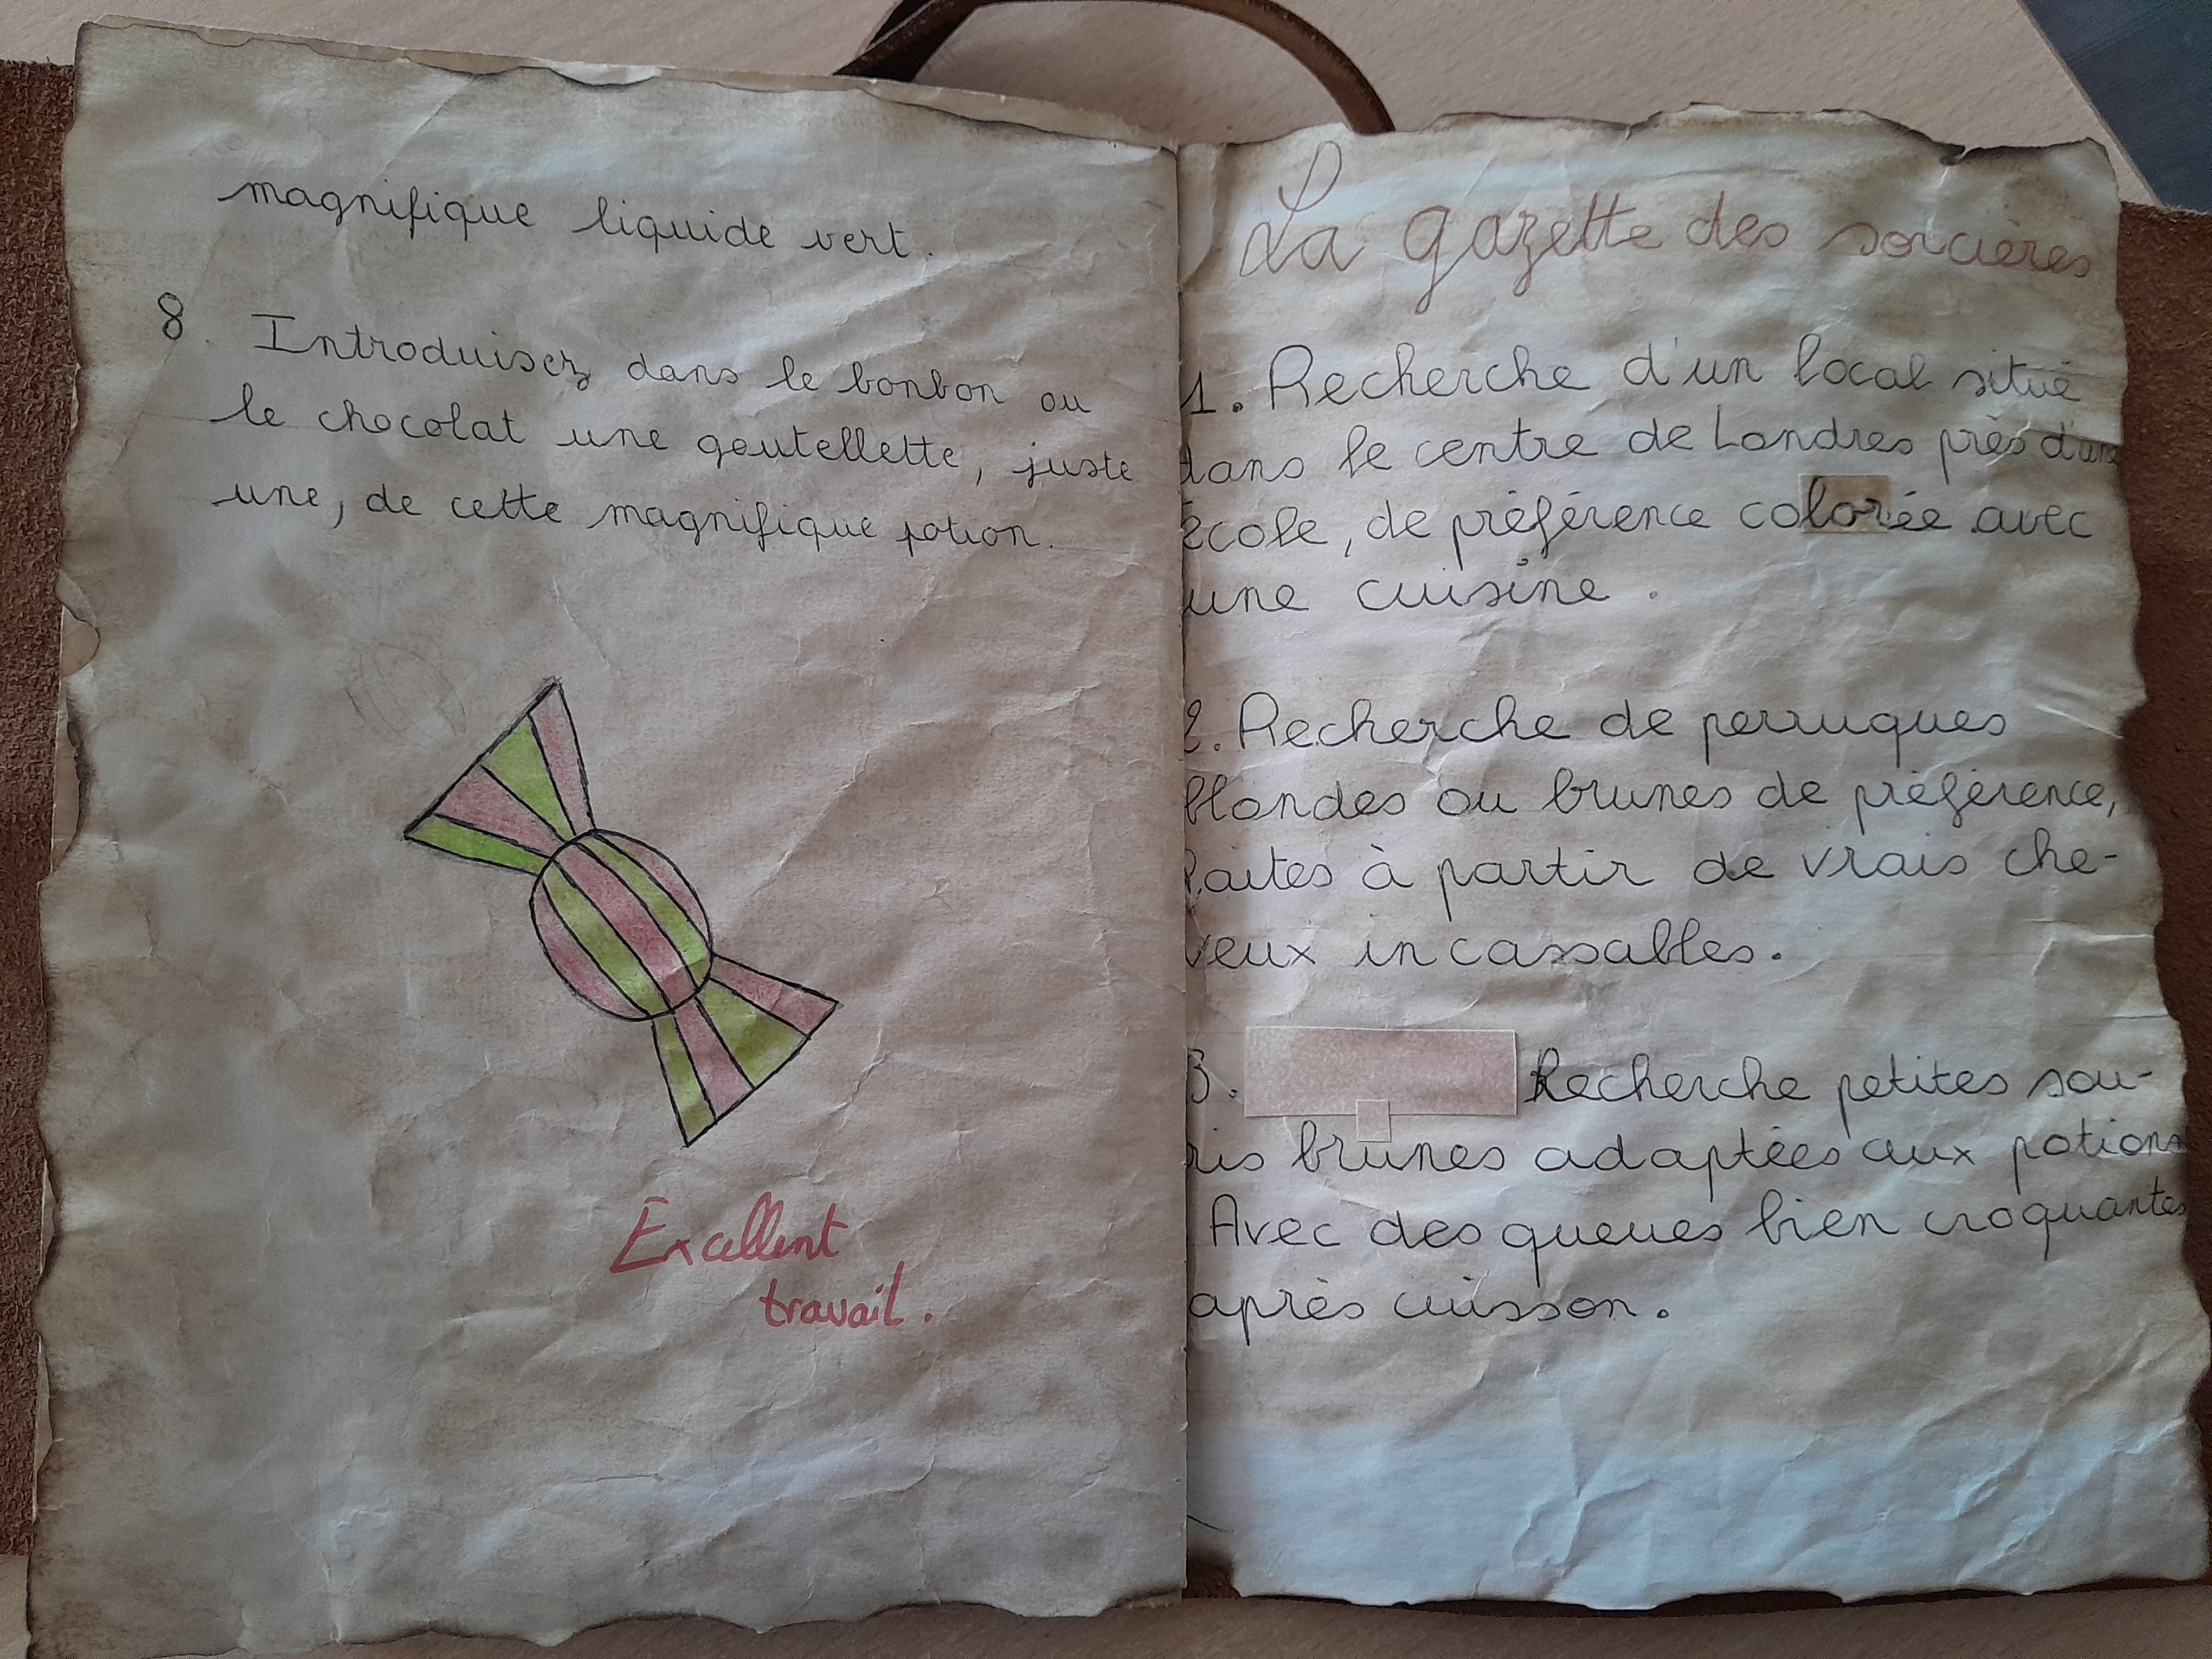 magnifique liquide vert.
8. Introduisez dans le bonbon ou
le chocolat une goutellette, juste
une, de cette magnifique potion.
Excellent
travail.
La gazette des sorcières
1. Recherche d'un local situé
dans le centre de Londres près d'une
école, de préférence colorée avec
une cuisine.
2. Recherche de perruques
blondes ou brunes de préférence,
faites à partir de vrais che-
veux incassables.
3. Recherche petites sou-
ris brunes adaptées aux potions
Avec des queues bien croquantes
après cuisson.